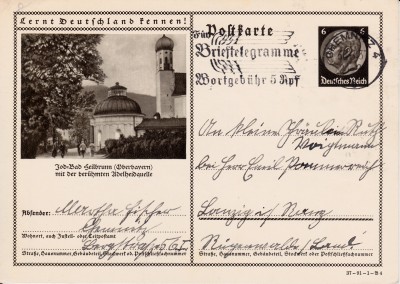 Lernt Deutschland kennen!
Postkarte
Für
Brieftelegramme
Wortgebühr 5 Rpf
CHEMNITZ
6 6
Deutsches Reich
Jod-Bad Heilbrunn (Oberbayern)
mit der berühmten Adelheidquelle
Absender: Martha Fischer
Chemnitz
Wohnort, auch Zustell- oder Leitpostamt
Straße, Hausnummer, Gebäudeteil, Stockwerk od. Postschließfachnummer
An kleine Fräulein Ruth
Voigtmann
bei Herr Emil
Lanzig
Rügenwalde / Land
Straße, Hausnummer, Gebäudeteil, Stockwerk oder Postschließfachnummer
37-81-1-B4